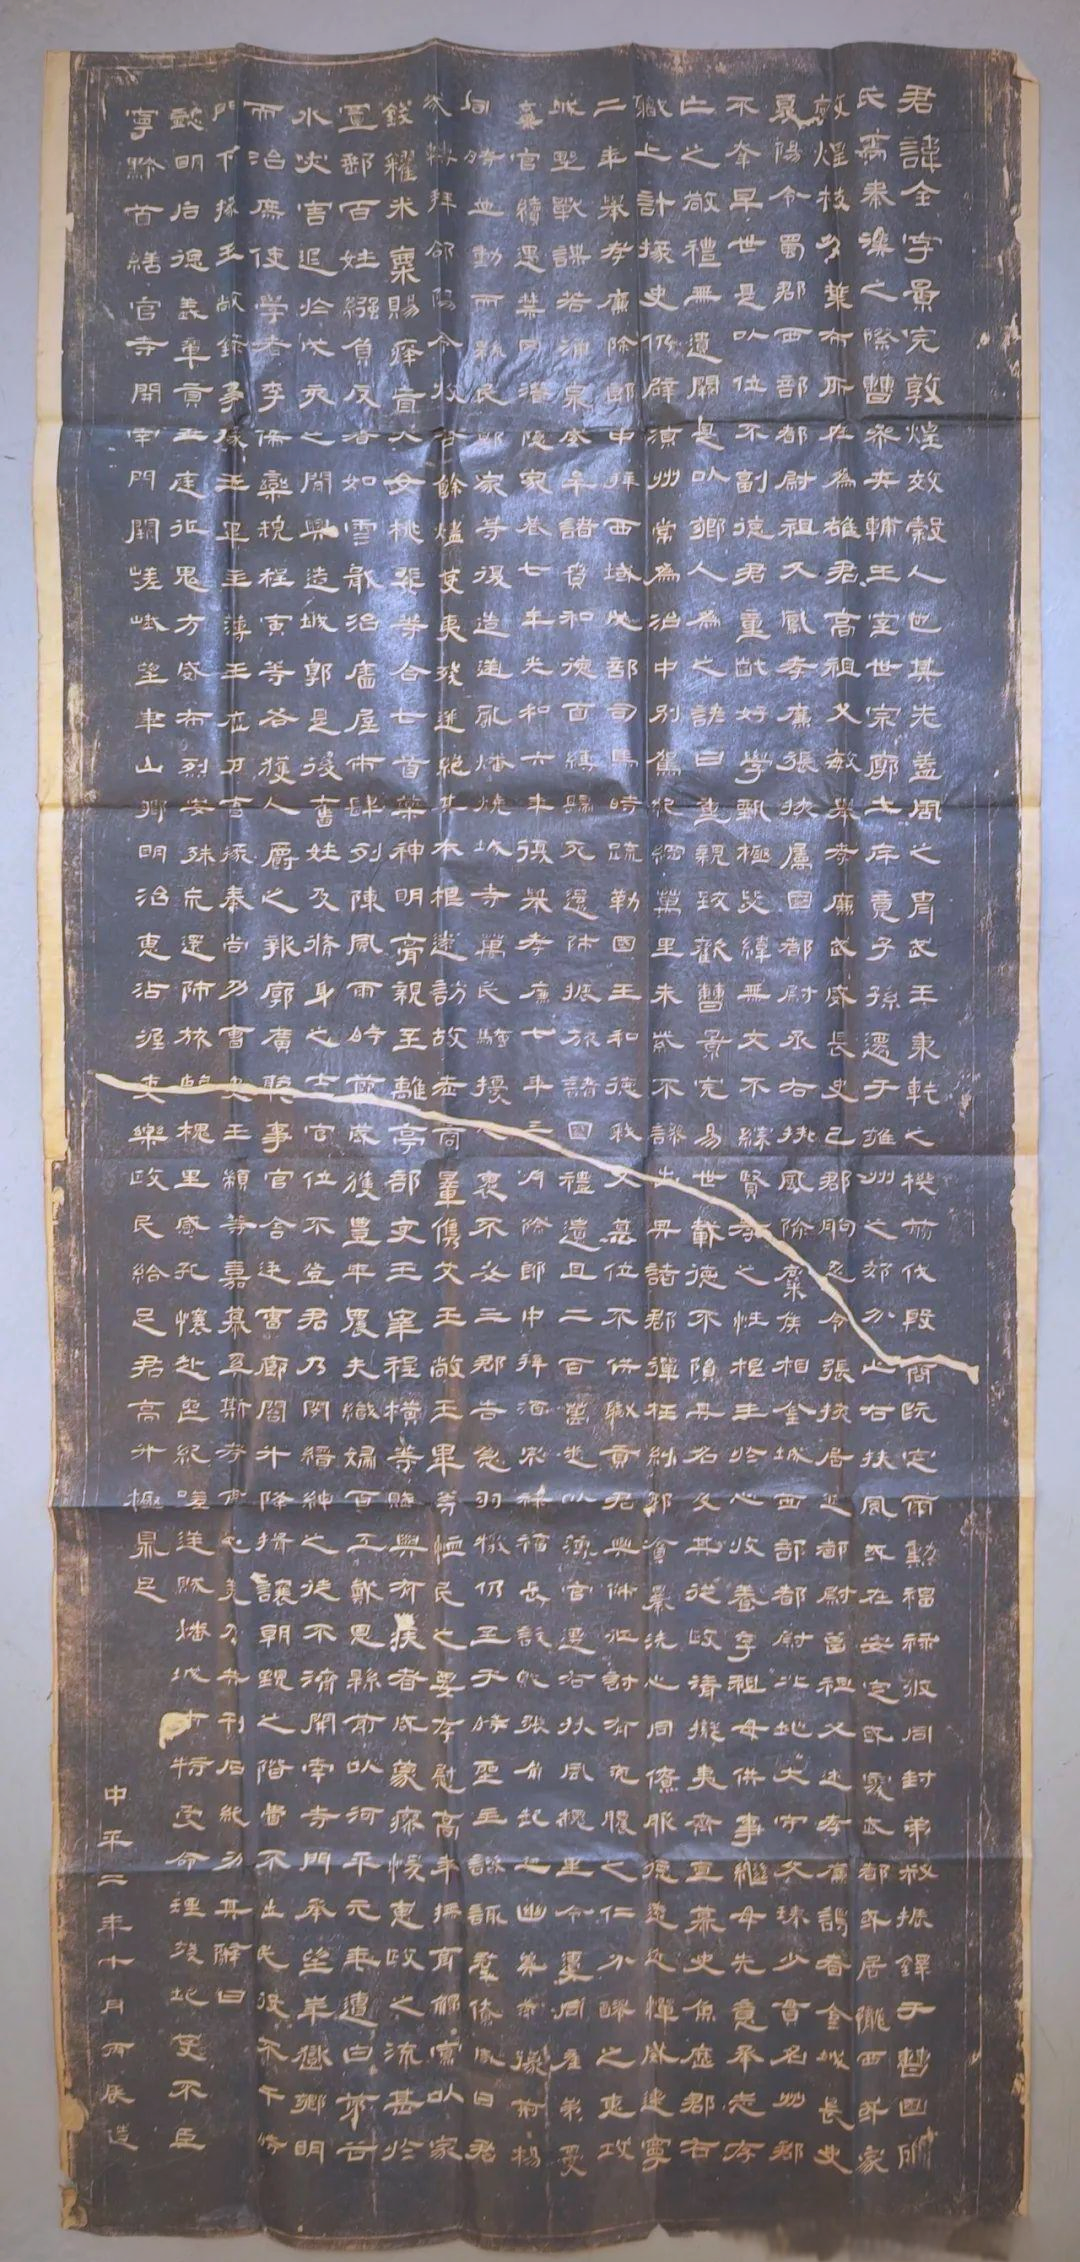 君諱全字景完敦煌效穀人也其先蓋周之胄武王秉乾之機翦伐殷商既定爾勳福祿攸同封弟叔振鐸于曹國因
氏焉秦漢之際曹參夾輔王室世宗廓土斥竟子孫遷于雍州之郊分止右扶風或在安定或處武都或居隴西或家
敦煌枝分葉布所在為雄君高祖父敏舉孝廉武威長史巴郡朐忍令張掖居延都尉曾祖父述孝廉謁者金城長史
夏陽令蜀郡西部都尉祖父鳳孝廉張掖屬國都尉丞右扶風隃麋侯相金城西部都尉北地大守父琫少貫名州郡
不幸早世是以位不副德君童齔好學甄極毖緯無文不綜賢孝之性根生於心收養季祖母供事繼母先意承志存
亡之敬禮無遺闕是以鄉人為之諺曰重親致歡曹景完易世載德不隕其名及其從政清擬夷齊直慕史魚歷郡右
職上計掾史仍辟涼州常為治中別駕紀綱萬里朱紫不謬出典諸郡彈枉糾邪貪暴洗心同僚服德遠近憚威建寧
二年舉孝廉除郎中拜西域戊部司馬時疏勒國王和德弒父篡位不供職貢君興師征討有兗膿之仁分醪之惠攻
城野戰謀若涌泉威牟諸賁和德面縛歸死還師振旅諸國禮遺且二百萬悉以薄官遷右扶風槐里令遭同產弟憂
棄官續遇禁岡潛隱家巷七年光和六年復舉孝廉七年三月除郎中拜酒泉祿福長訞賊張角起兵幽冀兗豫荊楊
同時並動而縣民郭家等復造逆亂燔燒城寺萬民騷擾人裹不安三郡告急羽檄仍至于時聖主諮諏群僚咸曰君
哉轉拜郃陽令收合餘燼芟夷殘迸絕其本根遂訪故老商量儁艾王敞王畢等恤民之要存慰高年撫育鰥寡以家
錢糴米粟賜癃盲大女桃斐等合七首藥神明膏親至離亭部吏王宰程橫等賦與有疾者咸蒙瘳悛惠政之流甚於
置郵百姓繦負反者如雲戢治廧屋市肆列陳風雨時節歲獲豐年農夫織婦百工戴恩縣前以河平元年遭白茅谷
水災害退於戊亥之間興造城郭是後舊姓及脩身之士官位不登君乃閔縉紳之徒不濟開南寺門承望華嶽鄉明
而治庶使學者李儒欒規程寅等各獲人爵之報廓廣聽事官舍廷曹廊閣升降揖讓朝覲之階費不出民役不干時
門下掾王敞錄事掾王畢主簿王歷戶曹掾秦尚功曹史王顓等嘉慕奚斯考甫之美乃共刊石紀功其辭曰
懿明后德義章貢王庭征鬼方威布烈安殊荒還師旅臨槐里感孔懷赴喪紀嗟逆賊燔城市特受命理殘圮芟不臣
寧黔首繕官寺開南門闕嵯峨望華山鄉明治惠沾渥吏樂政民給足君高升極鼎足
中平二年十月丙辰造